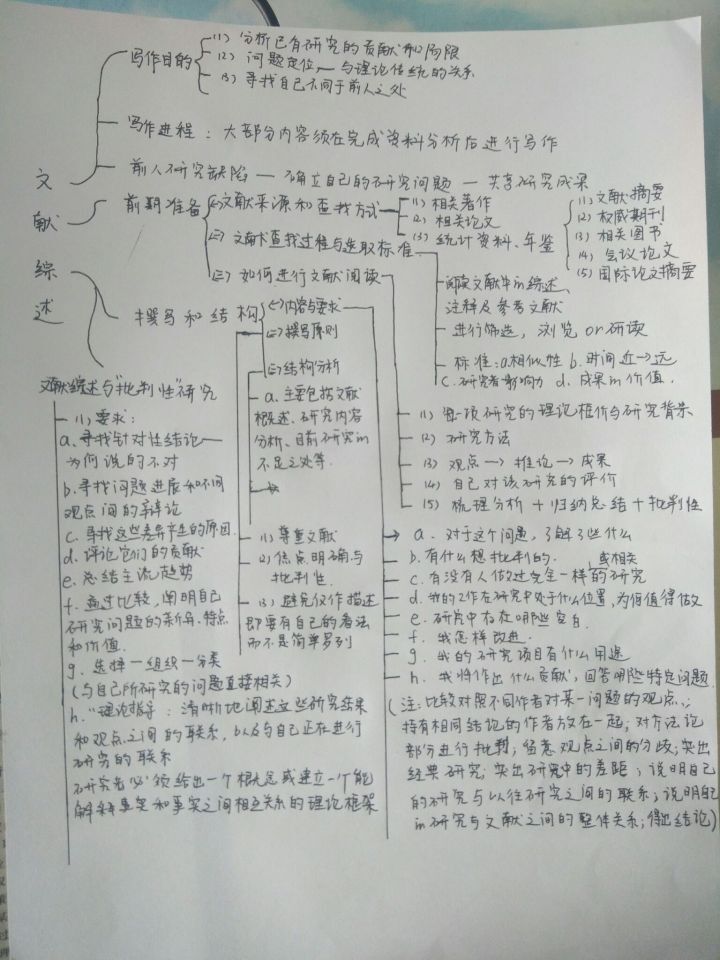 文献综述
写作目的
(1) 分析已有研究的贡献和局限
(2) 问题定位——与理论传统的关系
(3) 寻找自己不同于前人之处
写作进程：大部分内容须在完成资料分析后进行写作
前人研究缺陷—确立自己的研究问题—共享研究成果
前期准备
(一)文献来源和查找方式
(1) 相关著作
(2) 相关论文
(3) 统计资料、年鉴
(1) 文献摘要
(2) 权威期刊
(3) 相关图书
(4) 会议论文
(5) 国际论文摘要
(二) 文献查找过程与选取标准
阅读文献中的综述、
注释及参考文献
进行筛选，浏览or研读
标准：a.相似性 b.时间近→远
c.研究者影响力 d.成果的价值.
(三) 如何进行文献阅读
(1) 每一项研究的理论框价与研究背景
(2) 研究方法
(3) 观点→推论→成果
(4) 自己对该研究的评价
(5) 梳理分析+归纳总结+批判性
撰写和结构
(一)内容与要求
(二)撰写原则
(三)结构分析
a.主要包括文献
概述、研究内容
分析、目前研究的
不足之处等.
(1) 尊重文献
(2) 焦点明确与
批判性.
(3) 避免仅作描述
即要有自己的看法
而不是简单罗列
a. 对于这个问题，了解了些什么
b. 有什么想批判的.
c. 有没有人做过完全一样或相关的研究
d. 我的工作在研究中处于什么位置，为何值得做
e. 研究中存在哪些空白.
f. 我怎样改进.
g. 我的研究项目有什么用途
h. 我将作出什么贡献，回答哪些特定问题.
(注：比较对照不同作者对某一问题的观点；
持有相同结论的作者放在一起；对方法论
部分进行批判；留意观点之间的分歧；突出
经典研究；突出研究中的差距；说明自己
的研究与以往研究之间的联系；说明自己
的研究与文献之间的整体关系；得出结论)
文献综述与"批判性"研究
(1) 要求：
a.寻找针对性结论—
为何说的不对
b.寻找问题进展和不同
观点间的争论
c.寻找这些差异产生的原因.
d.评论它们的贡献
e.总结主流趋势
f.通过比较，阐明自己
研究问题的新角、特点
和价值.
g.选择—组织—分类
(与自己所研究的问题直接相关)
h."理论指导：清晰地阐述这些研究结果
和观点之间的联系，以及与自己正在进行
研究的联系
研究者必须给出一个概念或建立一个能
解释事实和事实之间相互关系的理论框架